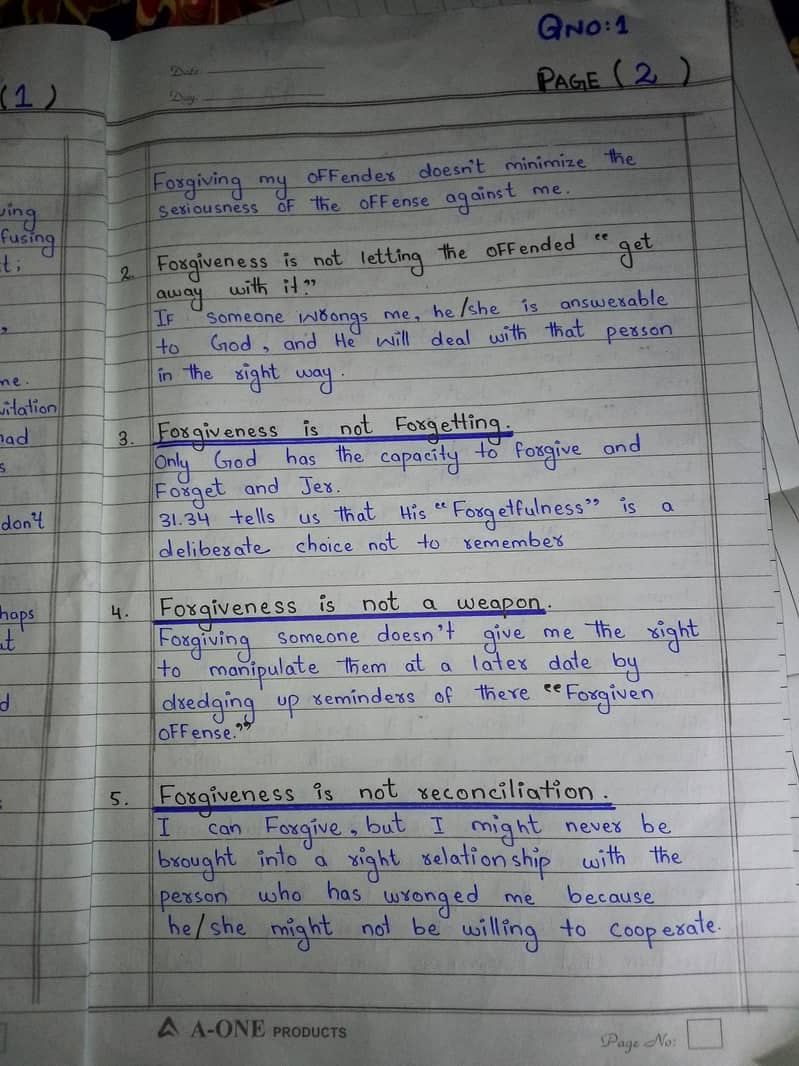 (1)
ving
fusing
t;
,
me.
vitation
had
s
don't
haps
at
d
QNO:1
Date:
Day:
PAGE (2)
Forgiving my offender doesn't minimize the
seriousness of the offense against me.
2. Forgiveness is not letting the offended "get
away with it"
If someone wrongs me, he/she is answerable
to God, and He will deal with that person
in the right way.
3. Forgiveness is not Forgetting.
Only God has the capacity to forgive and
Forget and Jer.
31.34 tells us that His "Forgetfulness" is a
deliberate choice not to remember
4. Forgiveness is not a weapon.
Forgiving someone doesn't give me the right
to manipulate them at a later date by
dredging up reminders of there "Forgiven
offense."
5. Forgiveness is not reconciliation.
I can Forgive, but I might never be
brought into a right relationship with the
person who has wronged me because
he/she might not be willing to cooperate.
A-ONE PRODUCTS
Page No: